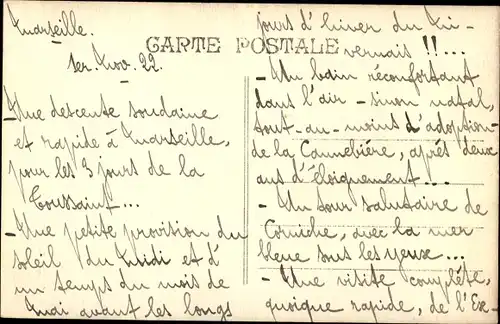 Marseille.
1er. Nov. 22.
CARTE POSTALE
- Une descente soudaine
et rapide à Marseille,
pour les 3 jours de la
Toussaint...
- Une petite provision du
soleil du Midi et d'
un temps du mois de
Mai avant les longs
jours d'hiver du Ni-
vernais !!...
- Un bain réconfortant
dans l'air - sinon natal,
tout-au-moins d'adoption-
de la Cannebière, après deux
ans d'éloignement...
- Un tour salutaire de
Corniche, avec la mer
bleue sous les yeux...
- Une visite complète,
quoique rapide, de l'Ex-